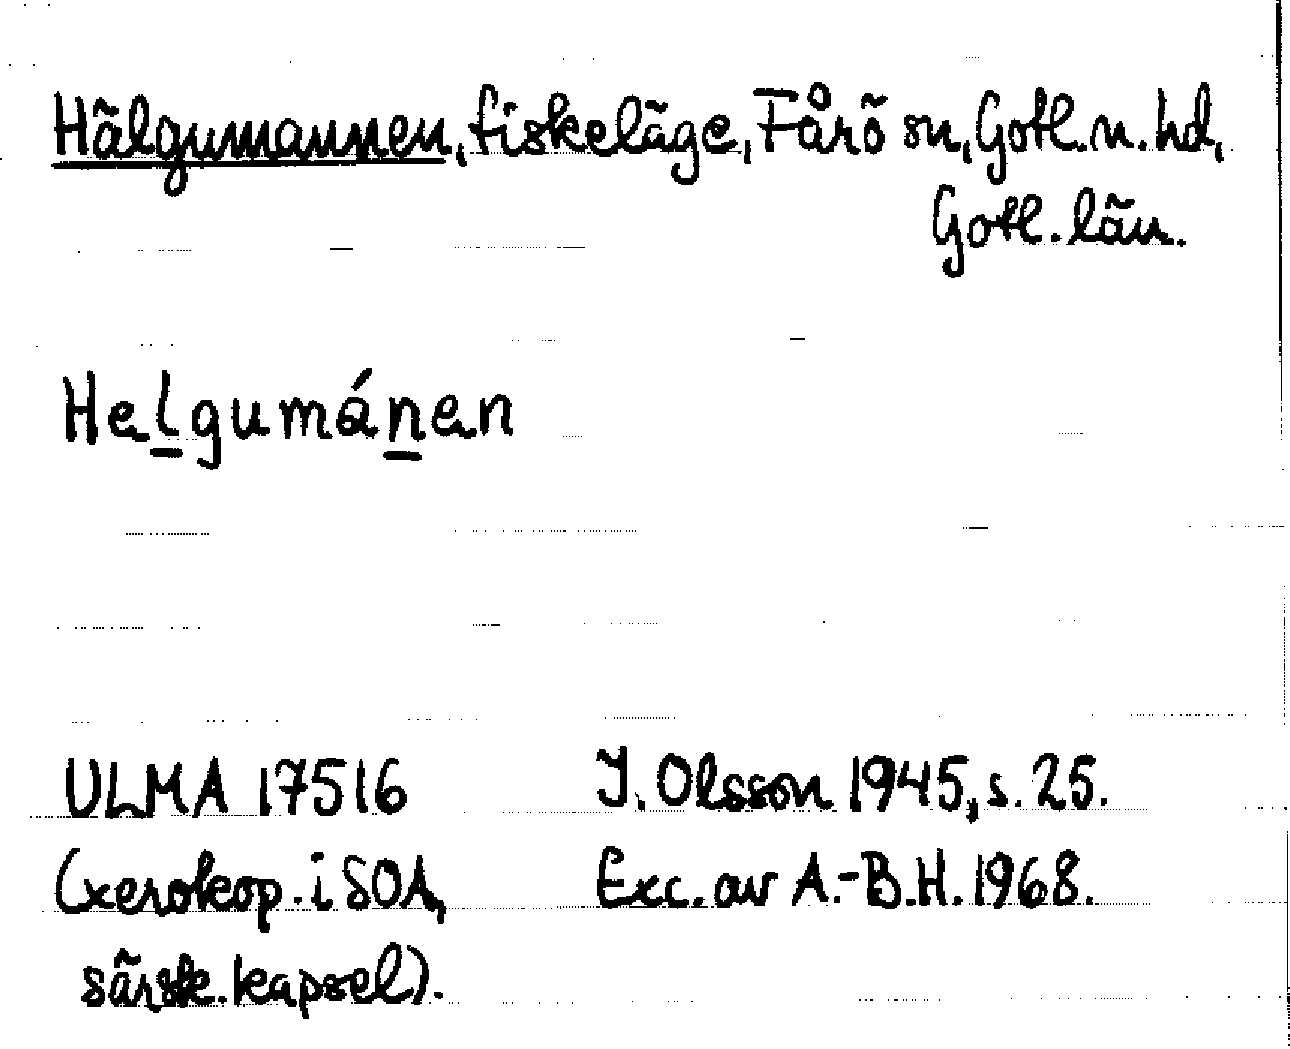 Hälgumannen, fiskeläge, Fårö sn, Gotl. n. hd,
Gotl. län.
Helgumánen
ULMA 17516
(xerokop. i SOA,
särsk. kapsel).
I. Olsson 1945, s. 25.
Exc. av A.-B.H. 1968.